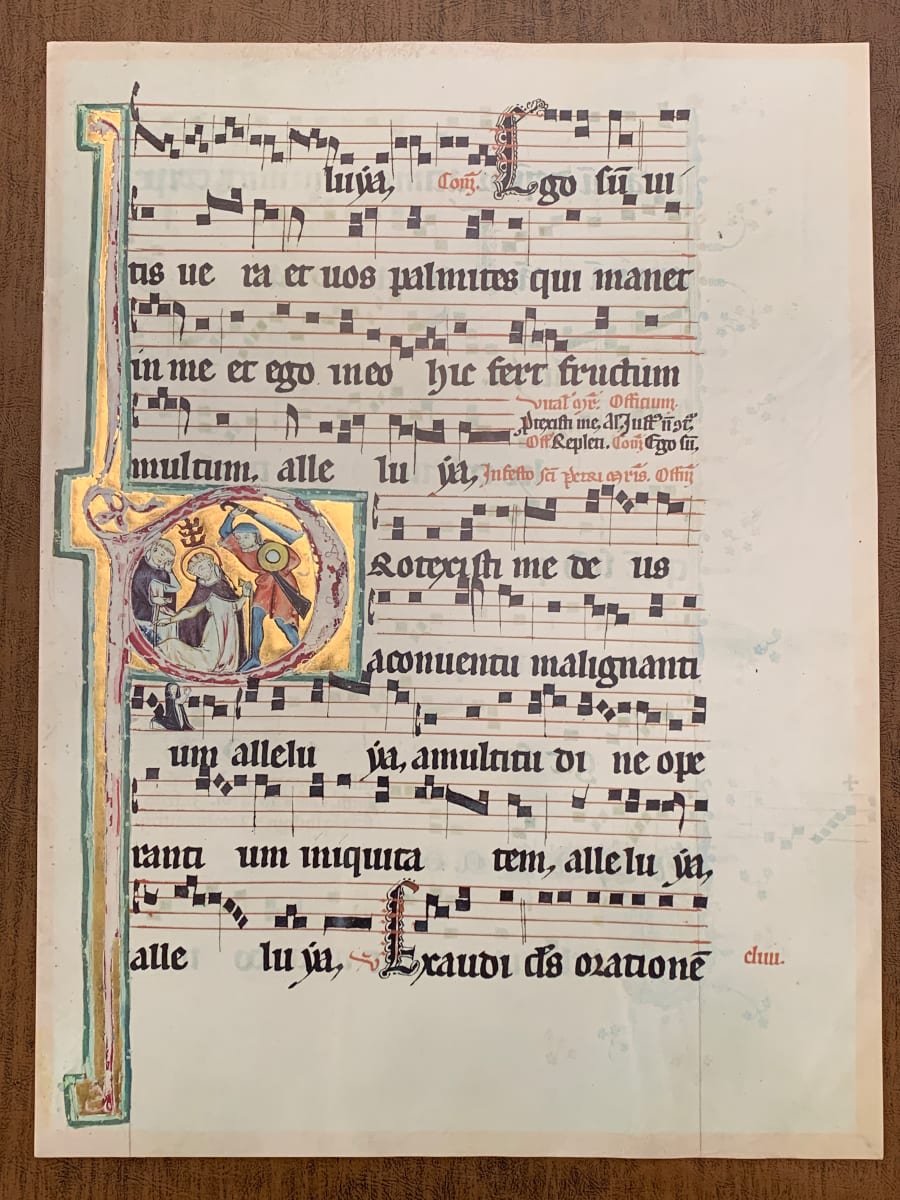 luÿa, Com̄. Ego sū ui
tis ue ra et uos palmites qui manet
in me et ego ineo hic fert fructum
Vital' mr̄. Officium.
Protexisti me, Al'. Just'
Off Repleti. Com̄ Ego sū,
multum, alle lu ÿa, In festo sc̄i petri mr̄is. Offm̄
Rotexisti me de us
aconuentu malignanti
um allelu ÿa, amultitu di ne ope
ranti um iniquita tem, alle lu ÿa,
alle lu ÿa, V Exaudi ds̄ orationē
cliiii.